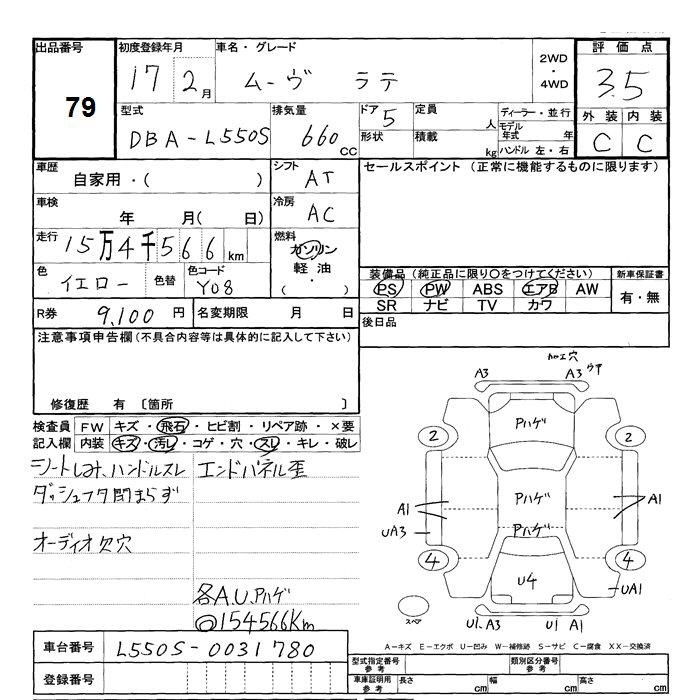 出品番号 初度登録年月 車名・グレード 評価点
79 17 2月 ムーヴ ラテ 2WD・4WD 3.5
型式 排気量 ドア 5 定員 人 ディーラー・並行 外装 内装
DBA-L550S 660cc 形状 積載 kg モデル年式 年 ハンドル 左・右 C C
車歴 シフト セールスポイント (正常に機能するものに限ります)
自家用・( ) AT
車検 冷房
年 月( 日) AC
走行 15万4千566km 燃料 ガソリン
軽油
・
( )
色 イエロー 色替 色コード Y08
装備品 (純正品に限り○をつけてください) 新車保証書
PS PW ABS エアB AW 有・無
SR ナビ TV カワ
R券 9,100円 名変期限 月 日 後日品
注意事項申告欄(不具合内容等は具体的に記入して下さい)
修復歴 有 〔箇所 〕
検査員 FW キズ・飛石・ヒビ割・リペア跡・×要
記入欄 内装 キズ・汚レ・コゲ・穴・スレ・キレ・破レ
シートしみ、ハンドルスレ エンドパネル歪
ダッシュフタ閉まらず
オーディオ欠穴
各A.U.Pハゲ
◎154566Km
カロエ穴
A3 A3 ウサ
Pハゲ
2 2
A1 Pハゲ A1
UA3 Pハゲ
4 4
U4 UA1
スペア U1.A3 U1 A1
A-キズ E-エクボ U-凹み W-補修跡 S-サビ C-腐食 XX-交換済
車台番号 L550S-0031780
型式指定番号 参考 類別区分番号 参考
登録番号 車庫証明用 参考 長さ cm 幅 cm 高さ cm